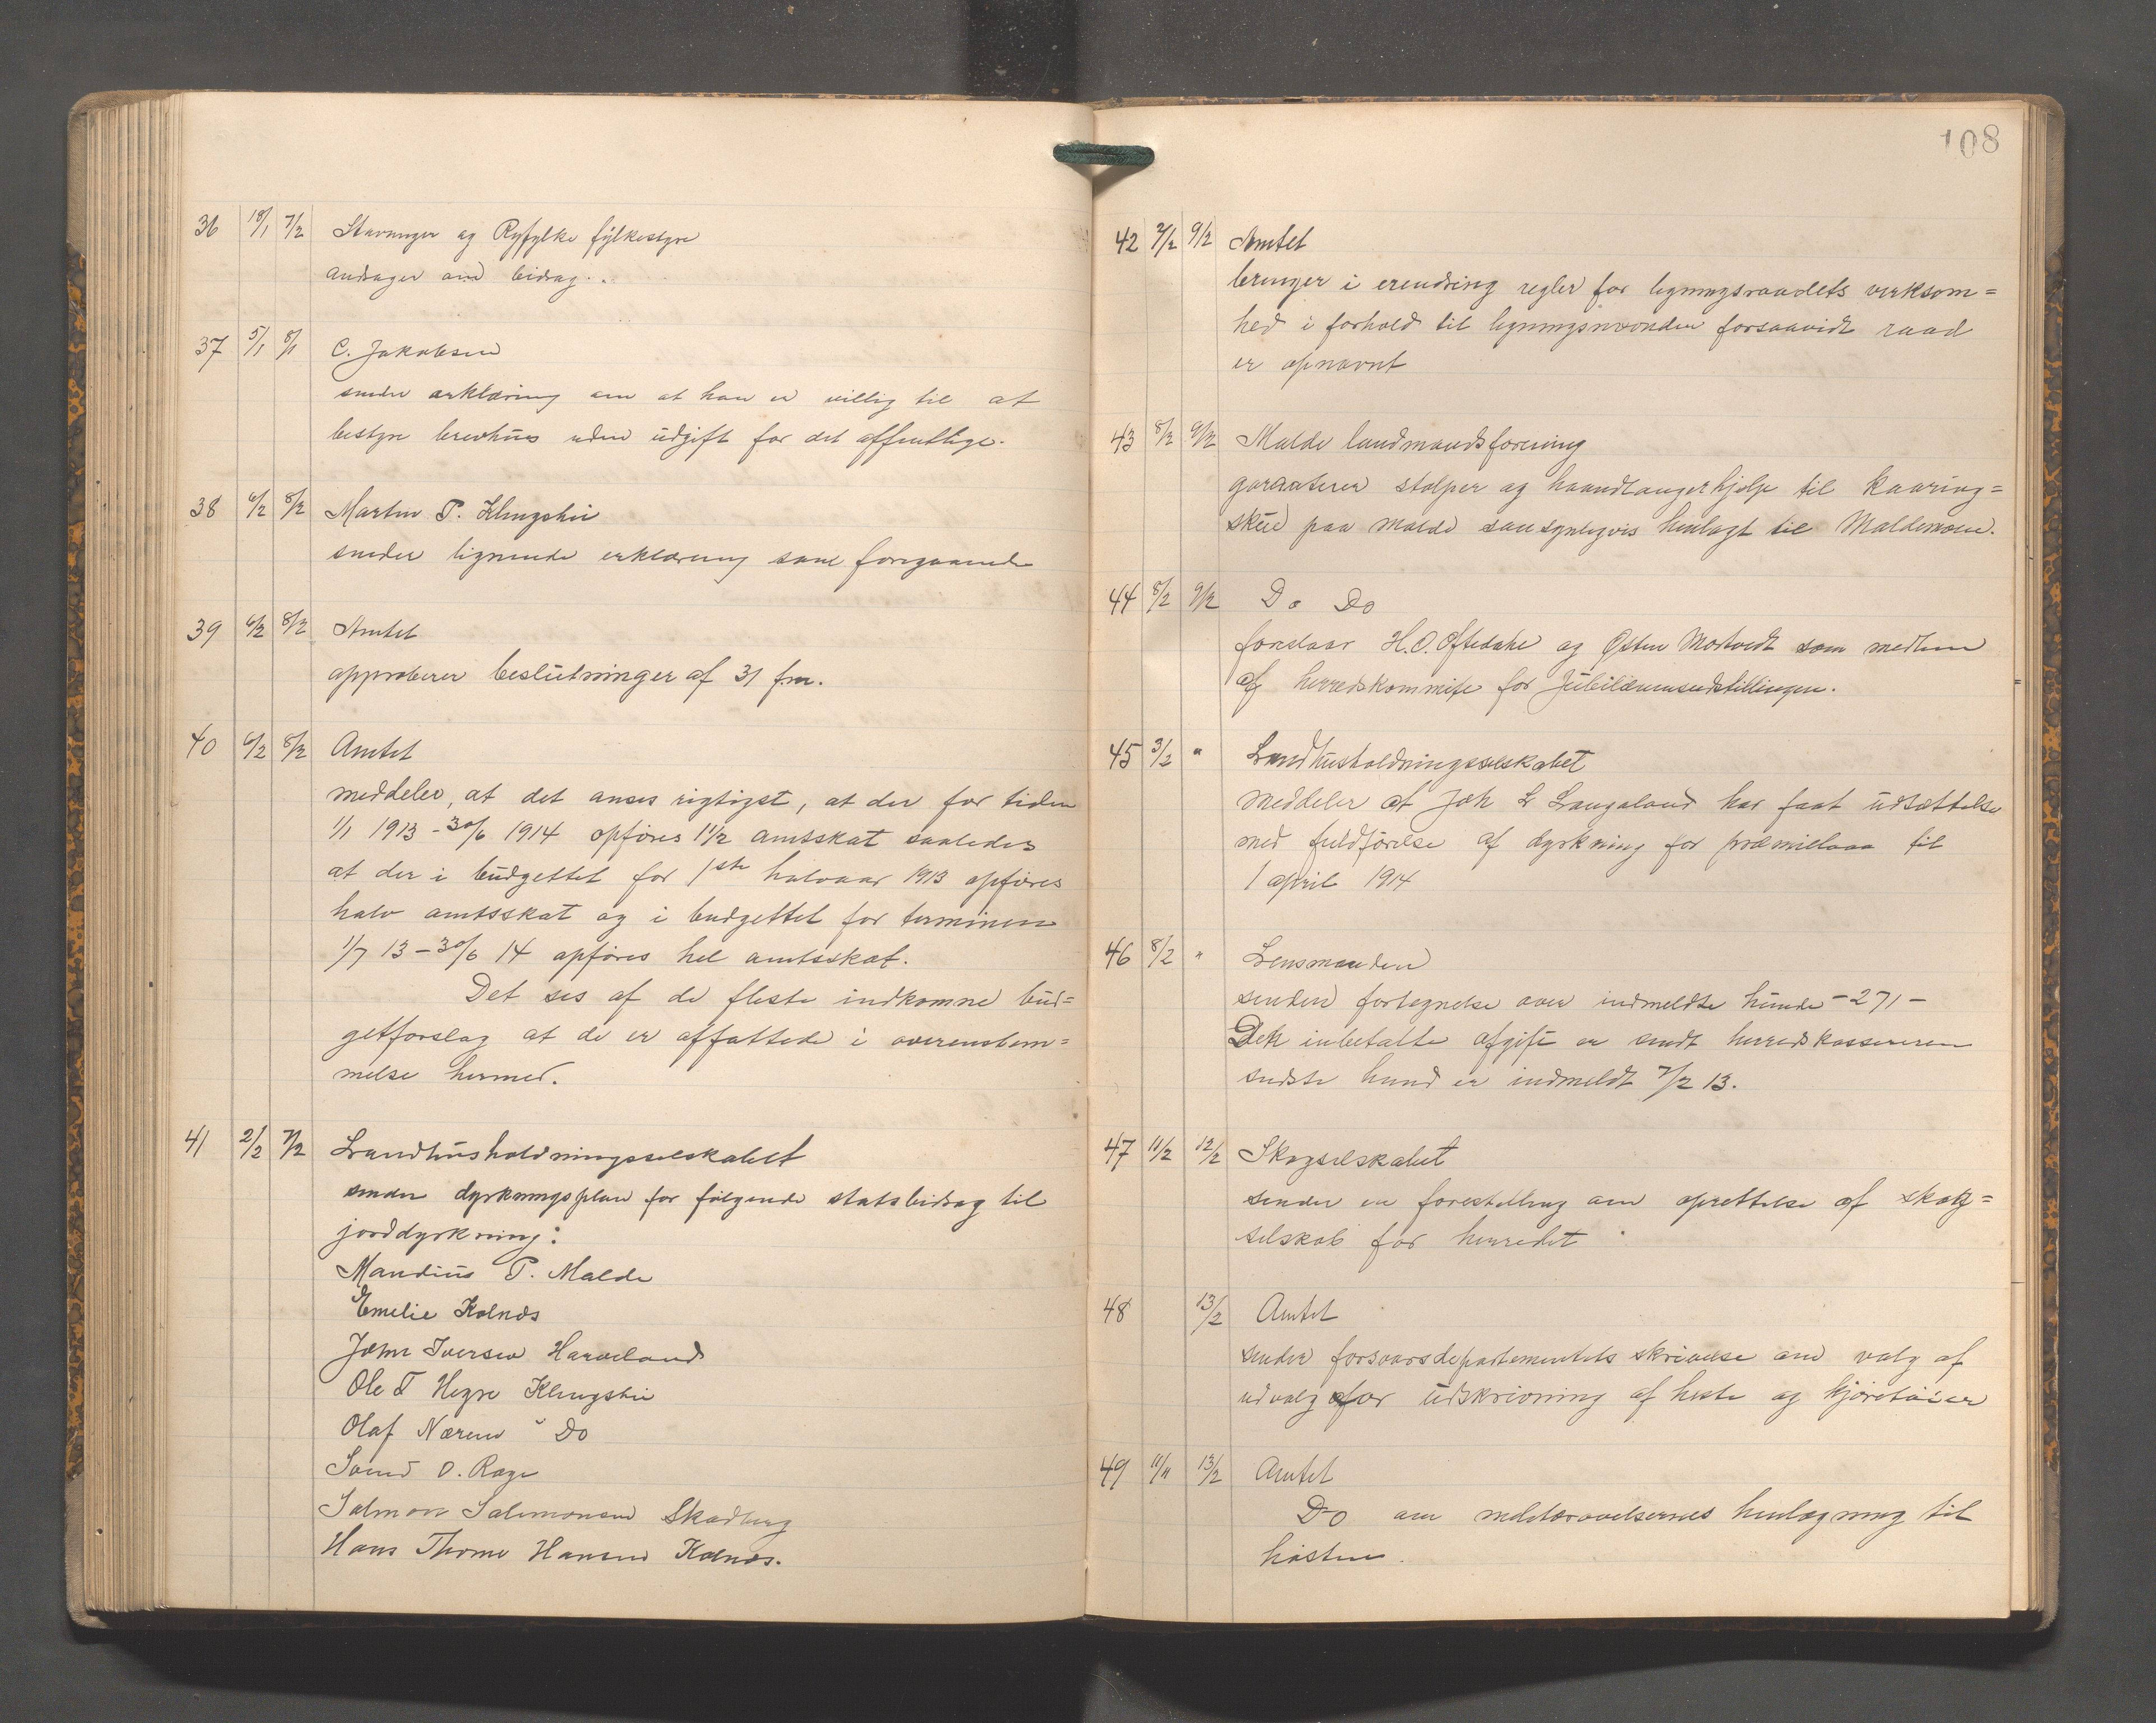 36 18/1 7/2 Stavanger og Ryfylke fylkestyre
andrager om bidrag.
37 5/1 8/1 C. Jakobsen
sender erklæring om at han er villig til at
bestyre brevhus uden udgift for det offentlige.
38 6/2 8/2 Martin T. Klingshei
sender lignende erklæring som foregaaende
39 6/2 8/2 Amtet
approberer beslutninger af 31 f.m.
40 6/2 8/2 Amtet
meddeler, at det anses rigtigst, at der for tiden
1/1 1913 - 30/6 1914 opføres 1 1/2 amtskat saaledes
at der i budgettet for 1ste halvaar 1913 opføres
halv amtsskat og i budgettet for terminen
1/7 13 - 30/6 14 opføres hel amtsskat.
Det ses af de fleste indkomne bud=
getforslag at de er affattede i overensstem=
melse hermed.
41 2/2 7/2 Landhusholdningsselskabet
sender dyrkningsplan for følgende statsbidrag til
jorddyrkning:
Mandius P. Malde
Emelie Kolnes
John Iversen Haaveland
Ole T Hegre Klingshei
Olaf Nærem " Do
Svend O. Rage
Salmon Salomonsen Skadberg
Hans Thome Hansen Kolnes.
108
42 7/2 9/2 Amtet
bringer i erendring regler for ligningsraadets virksom=
hed i forhold til ligningsnævnden forsaavidt raad
er opnævnt
43 8/2 9/2 Malde landmandsforening
garanterer stolper og haandlangerhjelp til kaaring=
skue paa Malde sansynligvis henlagt til Maldemoen.
44 8/2 9/2 Do Do
foreslaar H.O. Oftedahl og Østen Mostvedt som medlem
af herredskommite for Jubilæumsudstillingen.
45 3/2 " Landhusholdningsselskabet
meddeler at Joh L Langaland har faat udsættelse
med fuldførelse af dyrkning for præmielaan til
1 april 1914
46 8/2 " Lensmanden
sender fortegnelse over indmeldte hunde - 271 -
Den inbetalte afgift er sendt herredskassereren
sidste hund er indmeldt 7/2 13.
47 11/2 12/2 Skogselskabet
sender en forestilling om oprettelse af skog=
selskab for herredet
48 13/2 Amtet
sender forsvarsdepartementets skrivelse om valg af
udvalg for udskrivning af heste og kjøretøier
49 11/11 13/2 Amtet
Do om militærøvelsernes henlægning til
høsten.